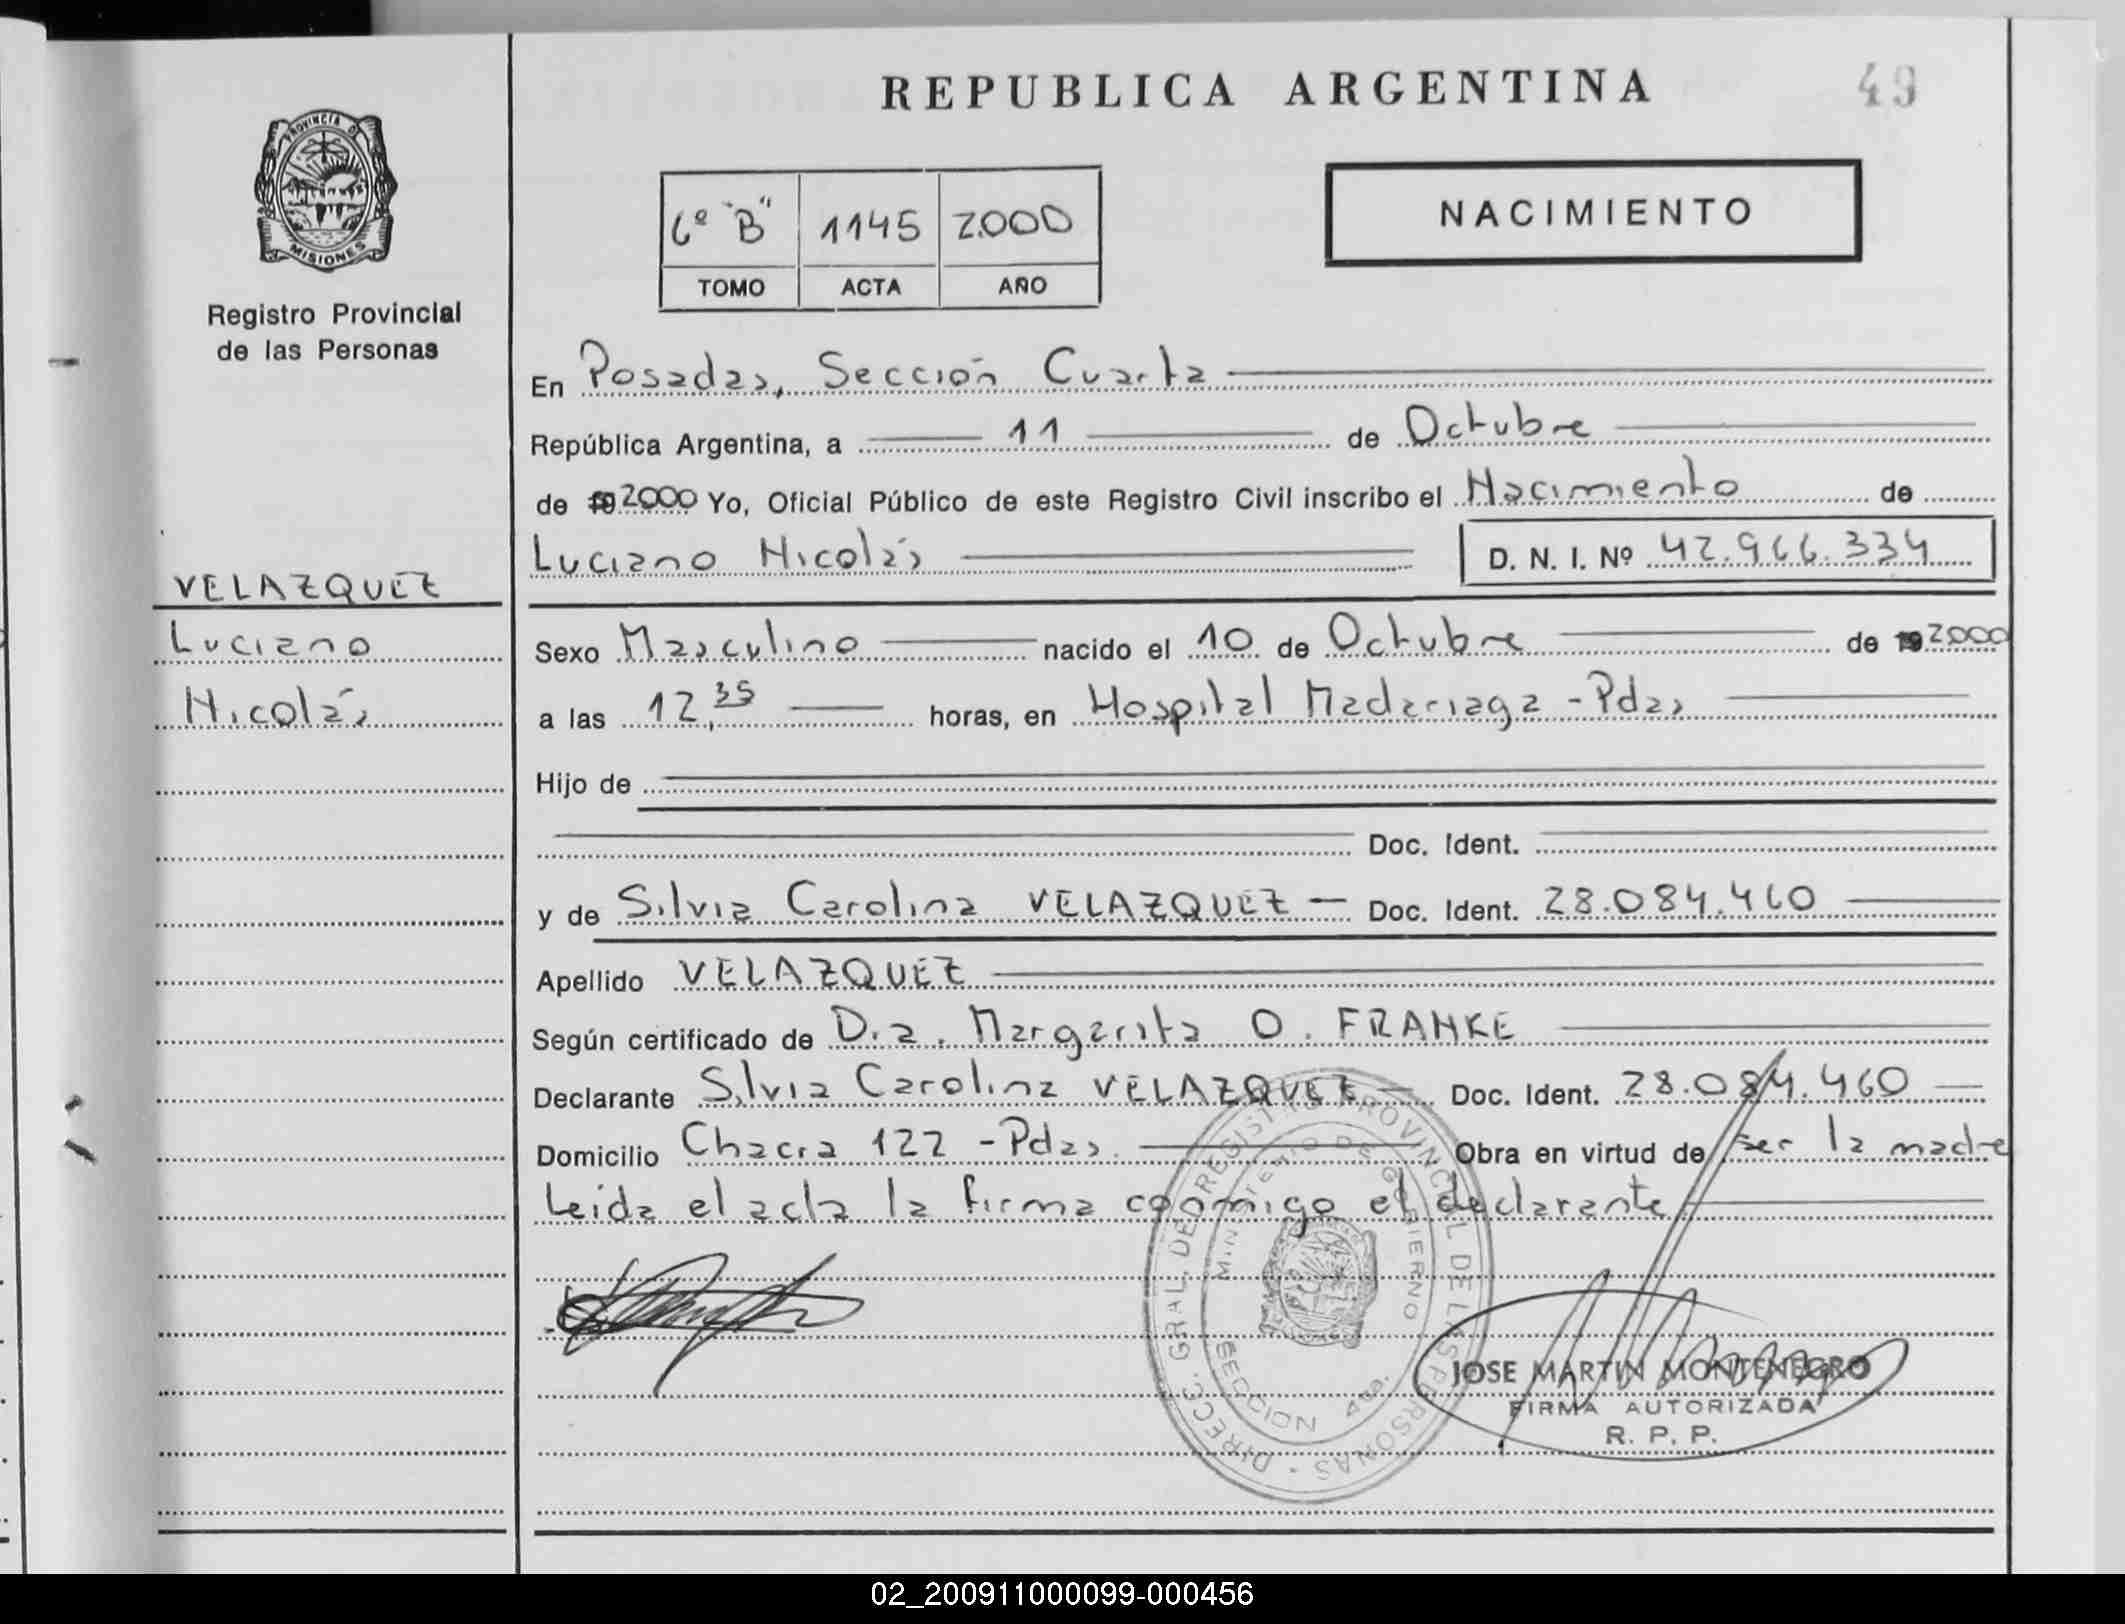 REPUBLICA ARGENTINA
49
PROVINCIA DE
MISIONES
Registro Provincial
de las Personas
6º "B" 1145 2000
TOMO ACTA AÑO
NACIMIENTO
En Posadas, Sección Cuarta
República Argentina, a 11 de Octubre
de 19 2000 Yo, Oficial Público de este Registro Civil inscribo el Nacimiento de
Luciano Nicolás D. N. I. Nº 42.966.334
VELAZQUEZ
Luciano
Nicolás
Sexo Masculino nacido el 10 de Octubre de 19 2000
a las 12,35 horas, en Hospital Madariaga - Pdas
Hijo de
Doc. Ident.
y de Silvia Carolina VELAZQUEZ - Doc. Ident. 28.084.460
Apellido VELAZQUEZ
Según certificado de Dra. Margarita O. FRANKE
Declarante Silvia Carolina VELAZQUEZ - Doc. Ident. 28.084.460
Domicilio Chacra 122 - Pdas. Obra en virtud de ser la madre
Leida el acta la firma conmigo el declarante
DIRECC. GRAL. DEL REGISTRO PROVINCIAL DE LAS PERSONAS
MINISTERIO DE GOBIERNO
SECCION 4ta.
JOSE MARTIN MONTENEGRO
FIRMA AUTORIZADA
R. P. P.
02_200911000099-000456